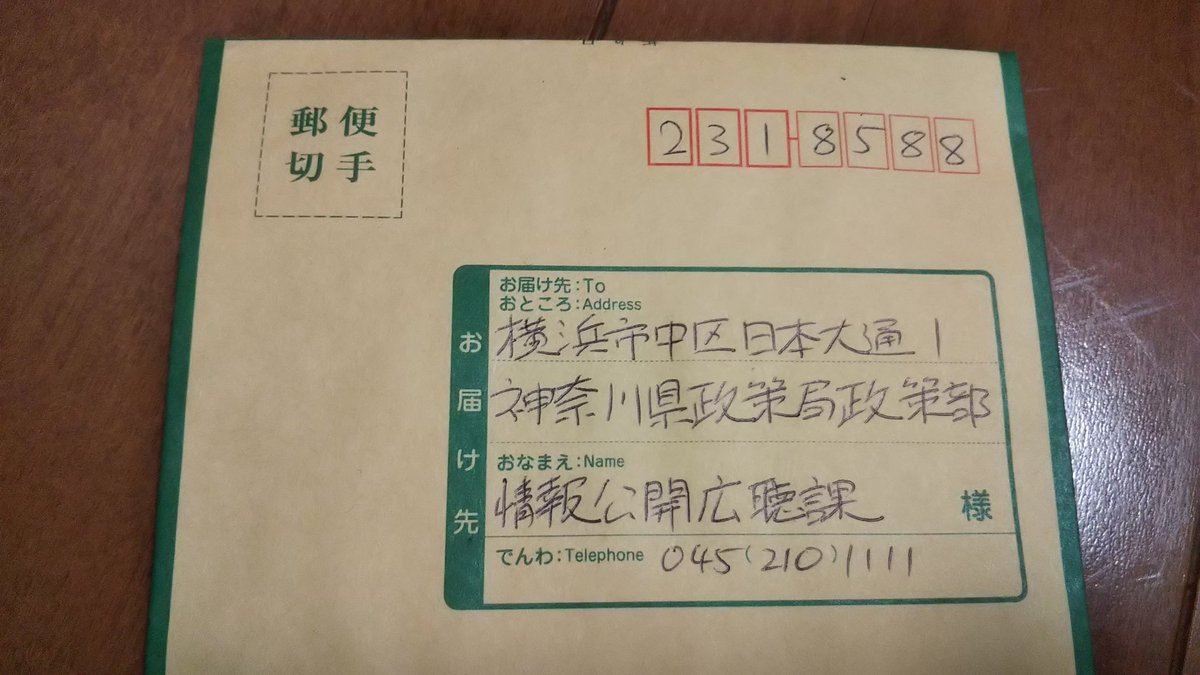 郵便
切手
231-8588
お届け先
お届け先:To
おところ:Address
横浜市中区日本大通1
神奈川県政策局政策部
おなまえ:Name
情報公開広聴課 様
でんわ:Telephone 045(210)1111